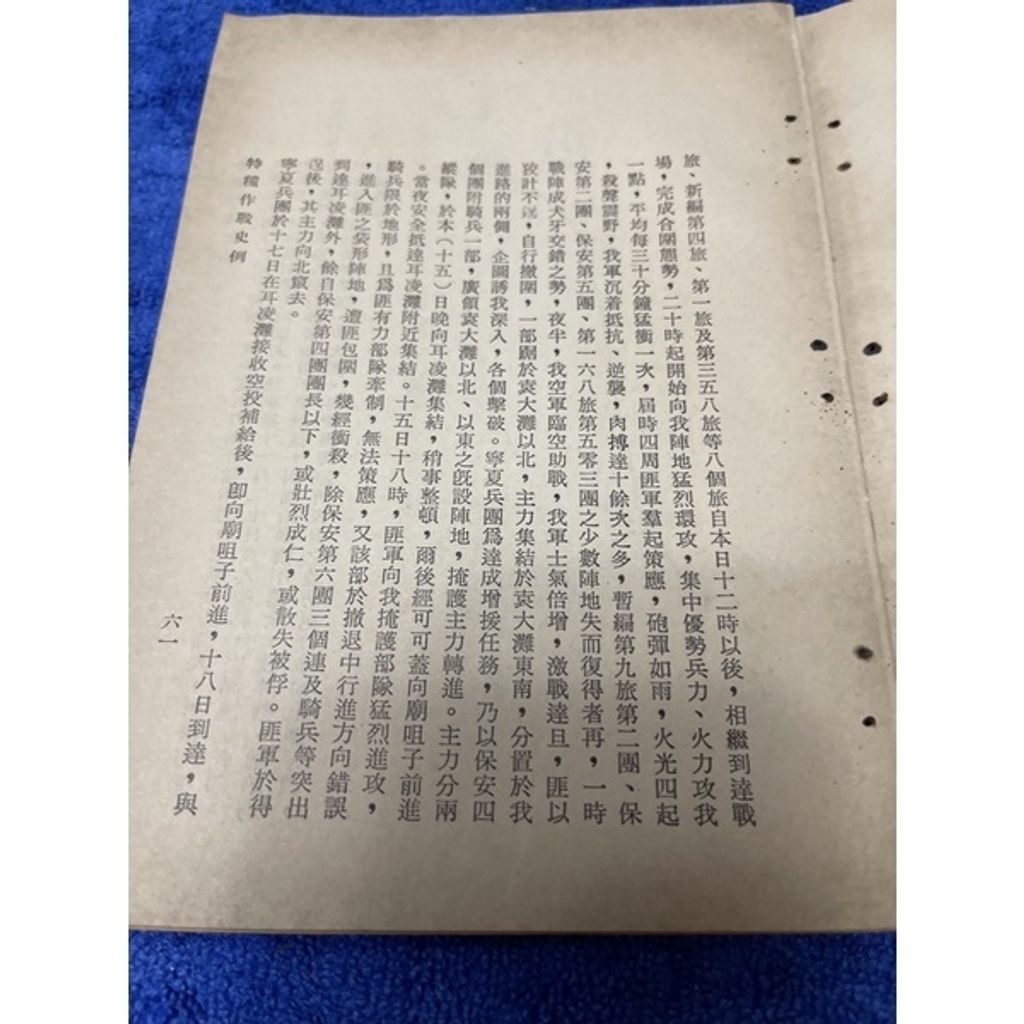 旅、新編第四旅、第一旅及第三五八旅等八個旅自本日十二時以後，相繼到達戰
場，完成合圍態勢，二十時起開始向我陣地猛烈環攻，集中優勢兵力、火力攻我
一點，平均每三十分鐘猛衝一次，屆時四周匪軍羣起策應，砲彈如雨，火光四起
，殺聲震野，我軍沉着抵抗、逆襲，肉搏達十餘次之多，暫編第九旅第二團、保
安第二團、保安第五團、第一六八旅第五零三團之少數陣地失而復得者再，一時
戰陣成犬牙交錯之勢，夜半，我空軍臨空助戰，我軍士氣倍增，激戰達旦，匪以
狡計不逞，自行撤圍，一部踞於袁大灘以北，主力集結於袁大灘東南，分置於我
進路的兩側，企圖誘我深入，各個擊破。寧夏兵團爲達成增援任務，乃以保安四
個團附騎兵一部，廣領袁大灘以北、以東之旣設陣地，掩護主力轉進。主力分兩
縱隊，於本（十五）日晚向耳凌灘集結，稍事整頓，爾後經可可蓋向廟咀子前進
。當夜安全抵達耳凌灘附近集結。十五日十八時，匪軍向我掩護部隊猛烈進攻，
騎兵限於地形，且爲匪有力部隊牽制，無法策應，又該部於撤退中行進方向錯誤
，進入匪之袋形陣地，遭匪包圍，幾經衝殺，除保安第六團三個連及騎兵等突出
到達耳凌灘外，餘自保安第四團團長以下，或壯烈成仁，或散失被俘。匪軍於得
逞後，其主力向北竄去。
寧夏兵團於十七日在耳凌灘接收空投補給後，卽向廟咀子前進，十八日到達，與
特種作戰史例
六一